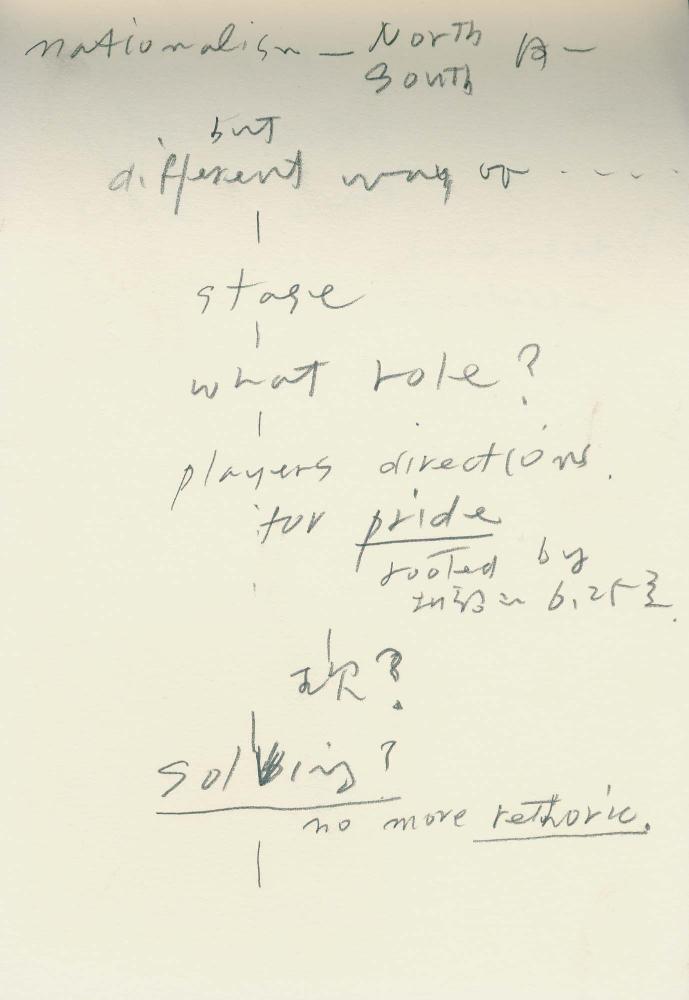 nationalism – North
South
but
different way of - - - - -
stage
what role?
players directions.
for pride
rooted by
6.25
?
solving?
no more rethoric.